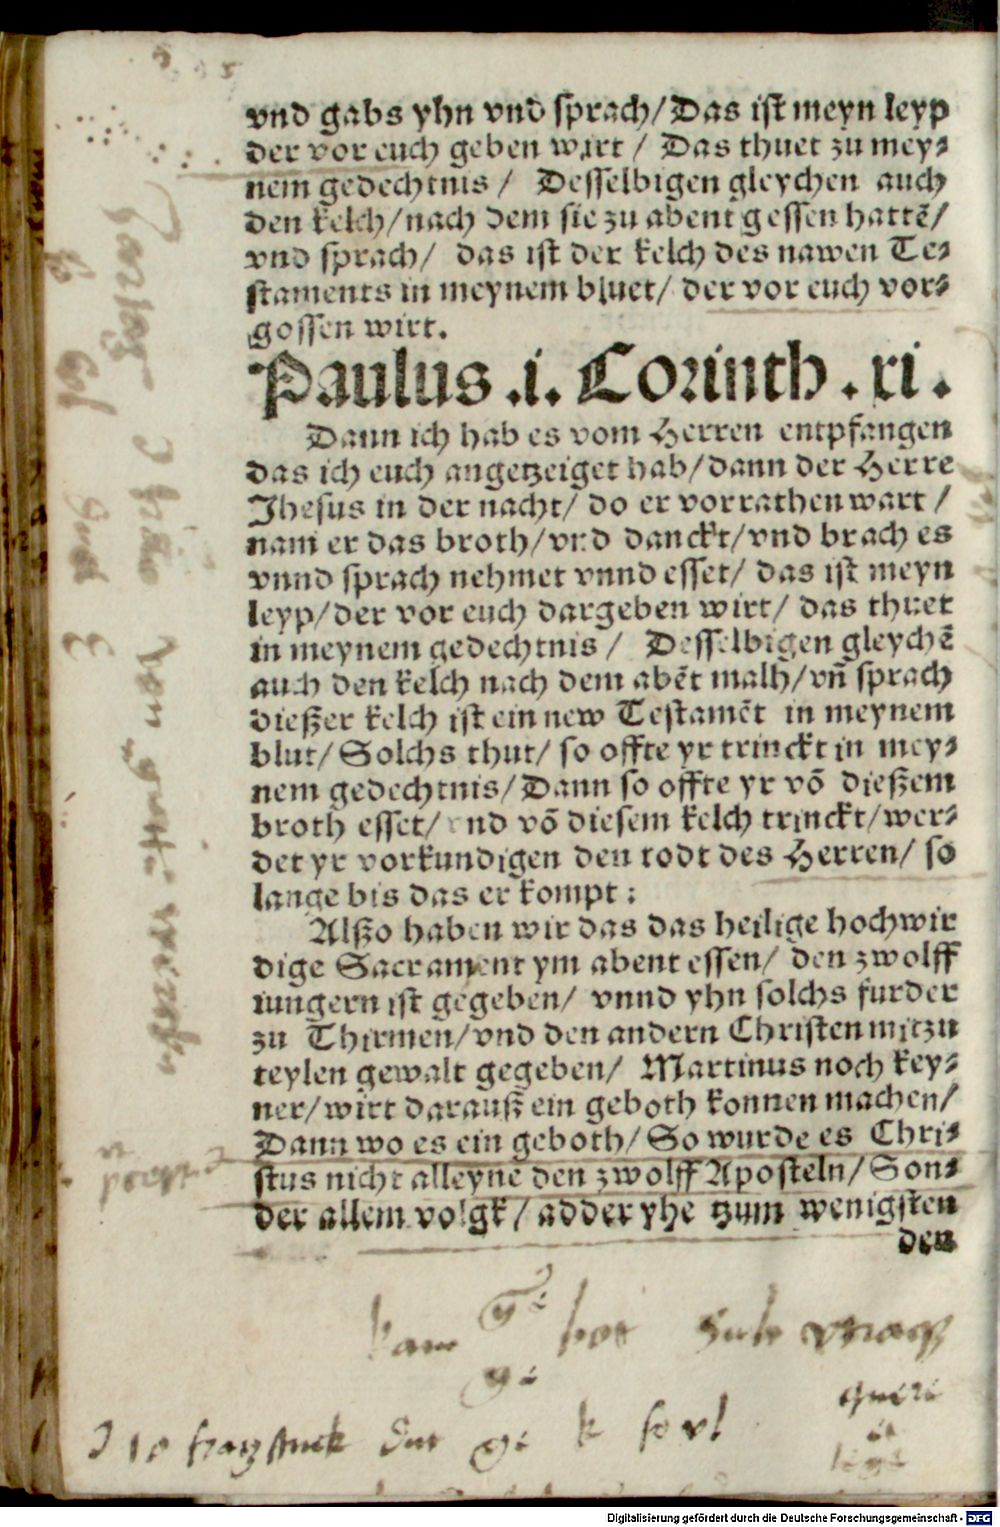 vnd gabs yhn vnd sprach/Das ist meyn leyp
der vor euch geben wirt / Das thuet zu mey⸗
nem gedechtnis / Desselbigen gleychen auch
den kelch/nach dem sie zu abent gessen hattē/
vnd sprach/ das ist der kelch des nawen Te⸗
staments in meynem bluet/ der vor euch vor⸗
gossen wirt.
Paulus .i. Corinth . xi .
Dann ich hab es vom Herren entpfangen
das ich euch angetzeiget hab/dann der Herre
Jhesus in der nacht/ do er vorrathen wart /
nam er das broth/vnd danckt/vnd brach es
vnnd sprach nehmet vnnd esset/ das ist meyn
leyp/der vor euch dargeben wirt/ das thuet
in meynem gedechtnis / Desselbigen gleychē
auch den kelch nach dem abēt malh/vn̄ sprach
dießer kelch ist ein new Testamēt in meynem
blut/Solchs thut/ so offte yr trinckt in mey⸗
nem gedechtnis/Dann so offte yr vō dießem
broth esset/ vnd vō diesem kelch trinckt/wer⸗
det yr vorkundigen den todt des Herren/ so
lange bis das er kompt :
Alßo haben wir das das heilige hochwir
dige Sacrament ym abent essen/ den zwolff
iungern ist gegeben/ vnnd yhn solchs furder
zu Thirmen/vnd den andern Christen mitzu
teylen gewalt gegeben/ Martinus noch key⸗
ner/wirt darauß ein geboth konnen machen/
Dann wo es ein geboth/So wurde es Chri⸗
stus nicht alleyne den zwolff Aposteln/Son⸗
der allem volgk/adder yhe tzum wenigsten
den
Digitalisierung gefördert durch die Deutsche Forschungsgemeinschaft - DFG